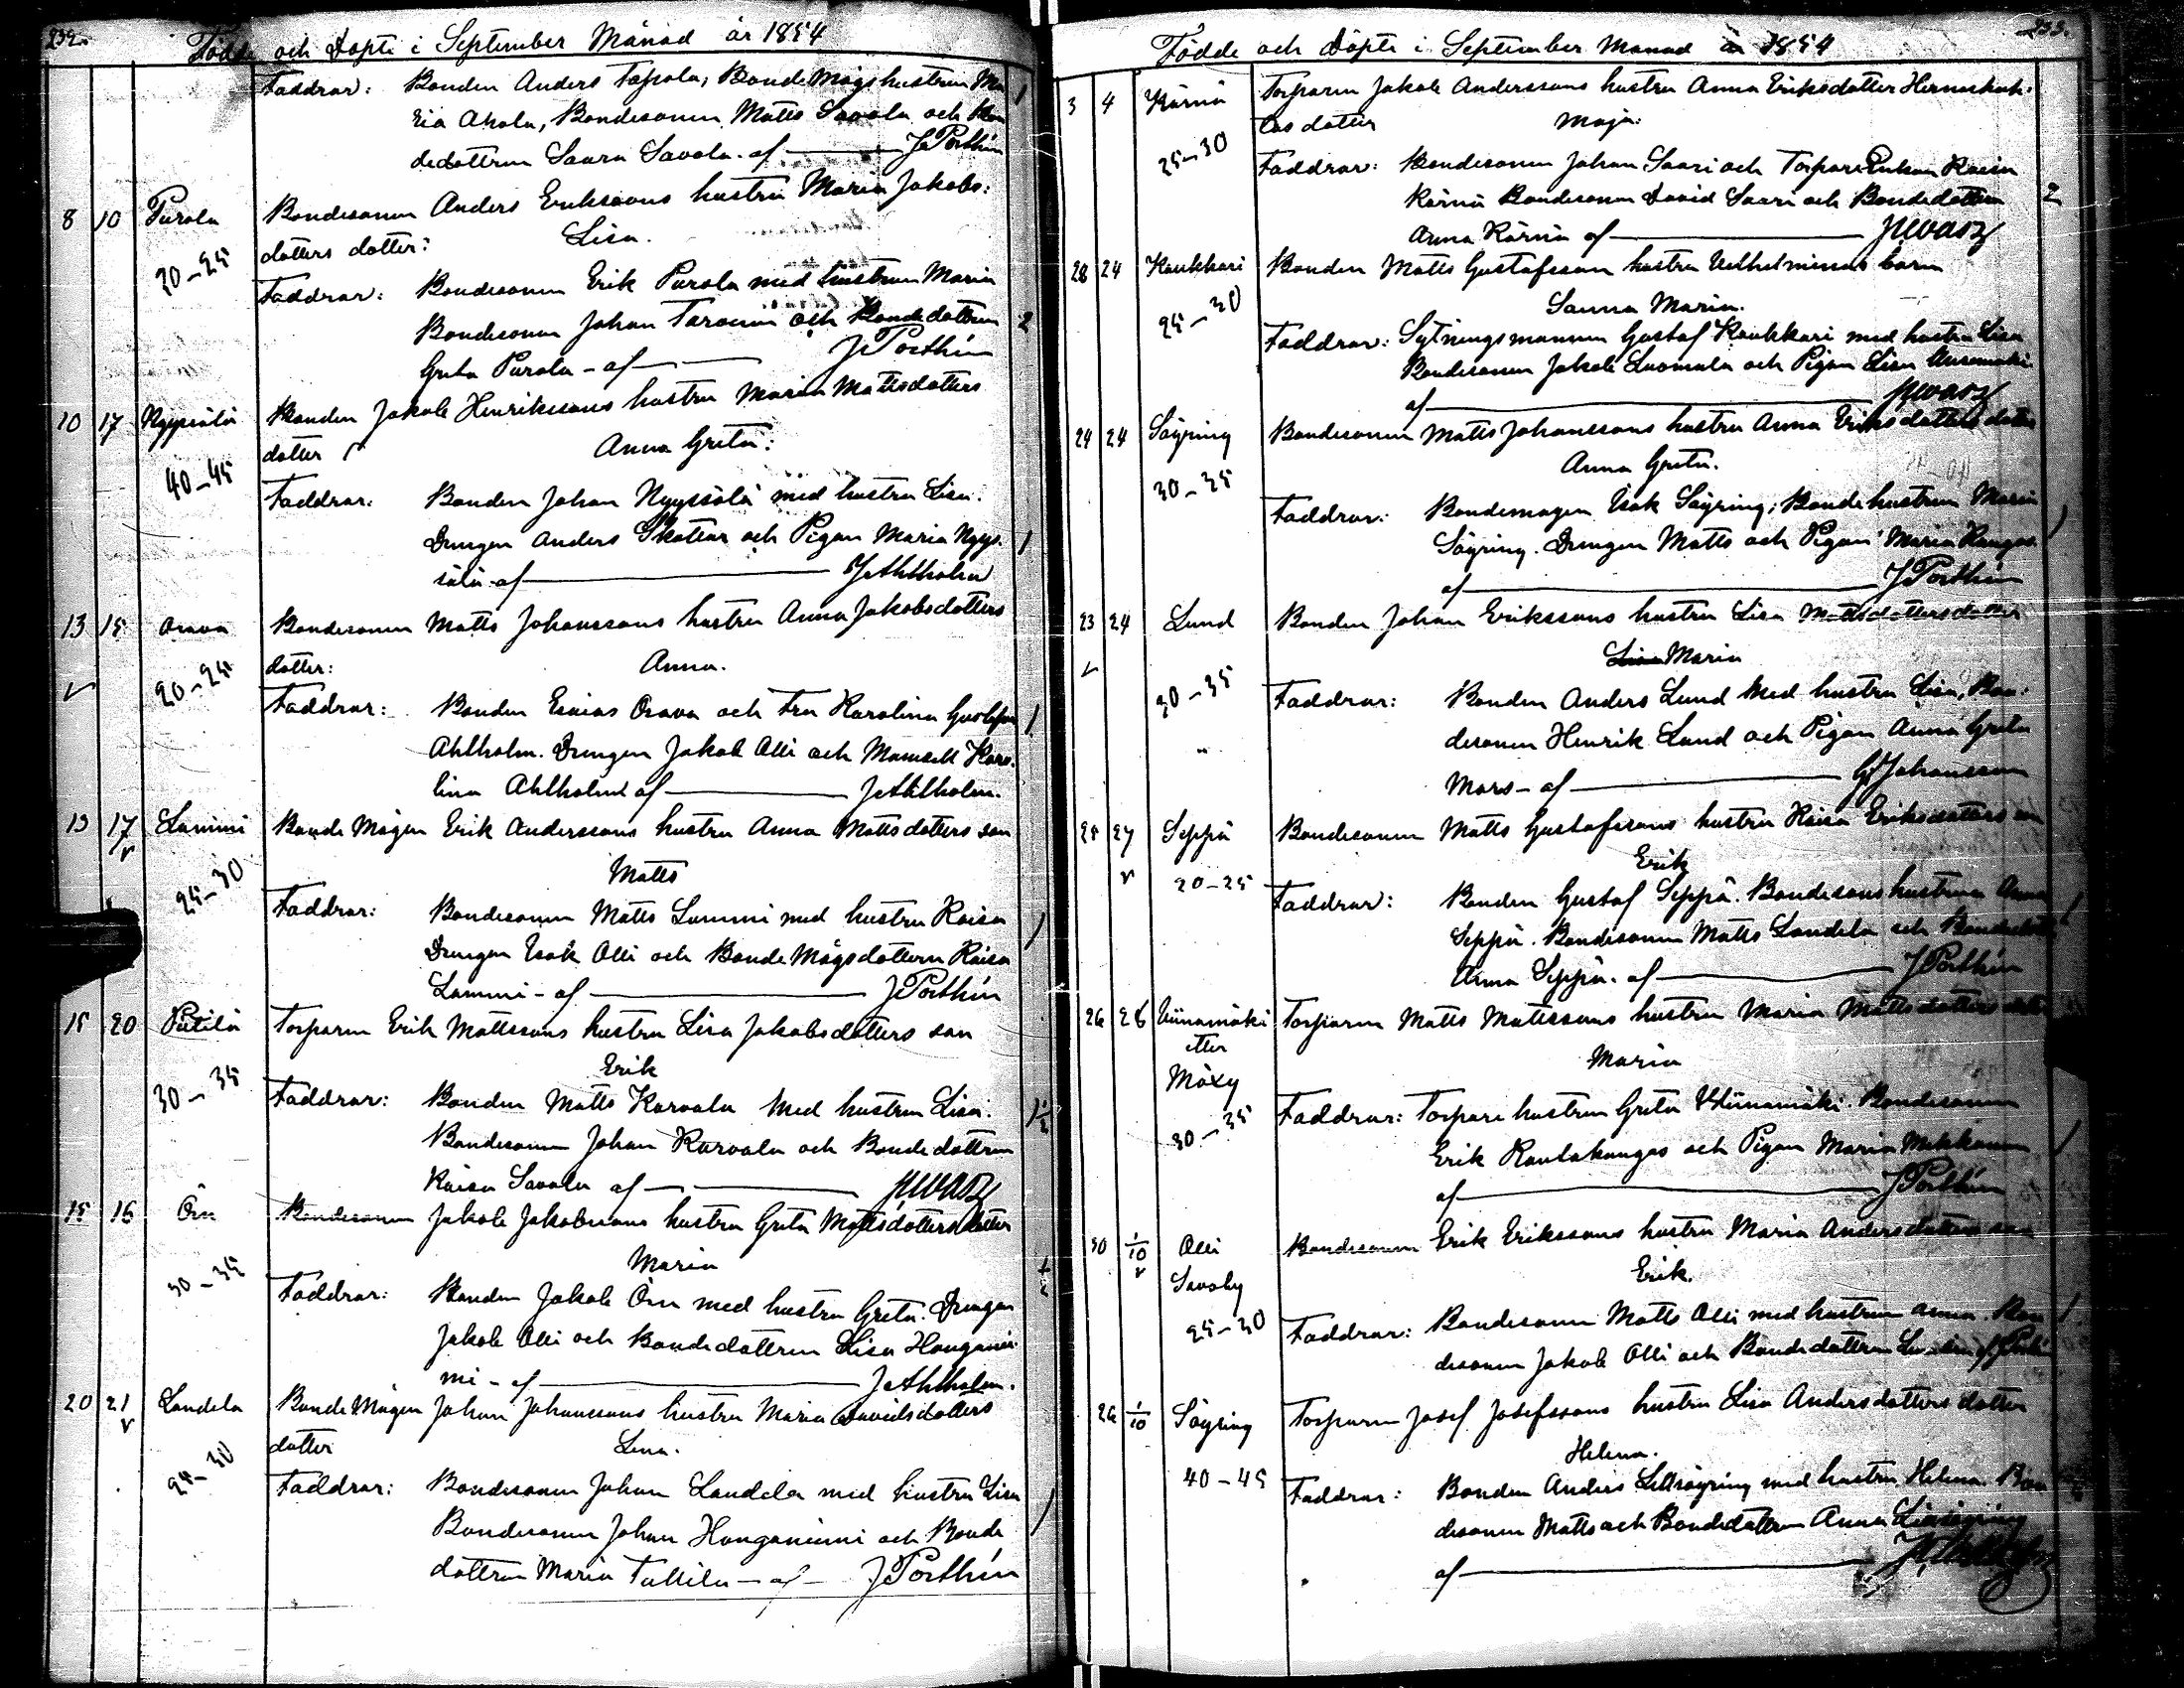 232.
Födde och Döpte i September Månad år 1854
Faddrar: Bonden Anders Tapola, Bonde Mågshustrun Ma 1
ria Ahola, Bondesonen Matts Savola och Bon
dedottren Saara Savola. af — J Porthin
8 10 Purola Bondesonen Anders Erikssons hustru Maria Jakobs:
dotters dotter: Lisa.
20-25
Faddrar: Bondesonen Erik Purola med hustrun Maria
Bondesonen Johan och Bondedottren 2
Greta Purola - af — J Porthin
10 17 Nyyssölä Bonden Jakob Henrikssons hustru Maria Mattsdotters
dotter Anna Greta.
40-45
Faddrar: Bonden Johan Nyyssölä med hustru Lisa.
Drengen Anders Skottar och Pigan Maria Nyys- 1
sölä - af — J Ahlholm
13 15 Orava Bondesonen Matts Johanssons hustru Anna Jakobsdotters
dotter: Anna.
20-25
Faddrar: Bonden Esaias Orava och Fru Karolina Gustafva 1
Ahlholm. Drengen Jakob Olli och Mamsell Karo-
lina Ahlholm af — J Ahlholm.
13 17 Lammi Bonde Mågen Erik Anderssons hustru Anna Mattsdotters son
Matts
25-30
Faddrar: Bondesonen Matts Lammi med hustru Kaisa
Drengen Isak Olli och Bonde Mågsdottern Kaisa 1
Lammi - af — J Porthin
15 20 Torparen Erik Mattssons hustru Lisa Jakobsdotters son
Erik
30-35
Faddrar: Bonden Matts Karvala med hustrun Lisa.
Bondesonen Johan Karvala och Bondedottren
Kaisa Savola af —
15 16 Örn Bondesonen Jakob Jakobssons hustru Greta Mattsdotters dotter
Maria
30-35
Faddrar: Bonden Jakob Örn med hustru Greta. Drengen
Jakob Olli och Bondedottren Lisa Honganie
mi - af — J Ahlholm.
20 21 Landela Bonde Mågen Johan Johanssons hustru Maria Davidsdotters
dotter Lena.
25-30
Faddrar: Bondesonen Johan Landela med hustru Lisa
Bondesonen Johan Honganiemi och Bonde 1
dottren Maria Tallila - af — J Porthin
233.
Födde och Döpte i September Månad år 1854
3 4 Kärnä Torparen Jakob Anderssons hustru Anna Eriksdotter
dotter Maja.
25-30
Faddrar: Bondesonen Johan Saari och Kaisa
Kärnä Bondesonen David Saari och Bondedottren 2
Anna Kärnä af —
24 Kaukkari Bonden Matts Gustafsson hustru Vilhelminas barn
Sanna Maria.
25-30
Faddrar: Sytningsmannen Gustaf Kaukkari med hustru Lisa
Bondesonen Jakob Luomala och Pigan Lisa
af —
24 24 Säyring Bondesonen Matts Johanssons hustru Anna Eriksdotters dotter
Anna Greta.
30-35
Faddrar: Bondemågen Isak Säyring, Bondehustrun Maria
Säyring. Drengen Matts och Pigan Maria Kangas 1
af — J Porthin
23 24 Lund Bonden Johan Erikssons hustru Lisa Mattsdotters dotter
Lisa Maria
30-35
Faddrar: Bonden Anders Lund med hustru Lisa, Bon-
desonen Henrik Lund och Pigan Anna Greta
Mars - af — Johansson
25 27 Seppä Bondesonen Matts Gustafssons hustru Kaisa Eriksdotters son
Erik
20-25
Faddrar: Bonden Gustaf Seppä. Bondesons hustrun Anna
Seppä. Bondesonen Matts Landela och 1
Anna Seppä. af — J Porthin
26 28 Viinamäki Torparen Matts Mattssons hustru Maria Mattsdotters dotter
Maria
30-35
Faddrar: Torpare hustrun Greta Viinamäki. Bondesonen
Erik Rautakangas och Pigan Maria 1
af — J Porthin
30 1/10 Olli Bondesonen Erik Erikssons hustru Maria Andersdotters son
Savoby Erik.
25-30
Faddrar: Bondesonen Matts Olli med hustrun Anna. Bon 1
desonen Jakob Olli och Bondedottren
26 1/10 Säyring Torparen Josef Josefssons hustru Lisa Andersdotters dotter
Helena.
40-45
Faddrar: Bonden Anders med hustru Helena. Bon
desonen Matts och Bondedottren Anna
af —